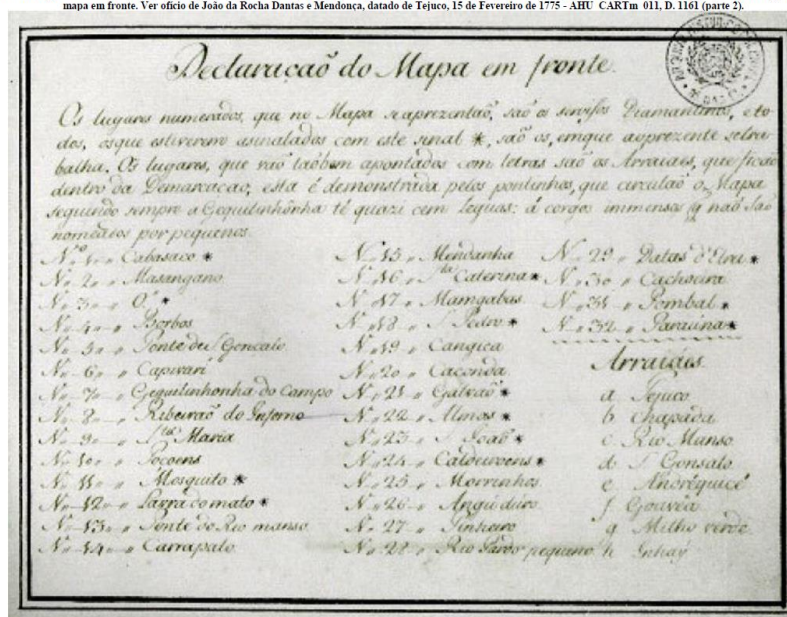 mapa em fronte. Ver ofício de João da Rocha Dantas e Mendonça, datado de Tejuco, 15 de Fevereiro de 1775 - AHU_CARTm_011, D. 1161 (parte 2).
Declaraçaõ do Mapa em fronte.
Os lugares numerados, que no Mapa se aprezentaõ, saõ os serviços Diamantinos, e to
dos, os que estiverem asinalados com este sinal *, saõ os, em que ao prezente se tra
balha. Os lugares, que vaõ taõbem apontados com letras saõ os Arraiaes, que ficaõ
dentro da Demarcaçaõ, esta é demonstrada pelos pontinhos, que circulaõ o Mapa
seguindo sempre a Gequitinhônha té quazi cem legoas: á corgos immensos q naõ saõ
nomeados por pequenos.
Nº 1 Cabasaco *
N. 2 Masangano
N. 3 O. *
N. 4 Borbas
N. 5 Ponte de S. Goncalo
N. 6 Capivari
N. 7 Gequitinhonha do Campo
N. 8 Ribeiraõ do Inferno
N. 9 Sta. Maria
N. 10 Pocoens
N. 11 Mosquito *
N. 12 Barra do mato *
N. 13 Ponte do Rio manso
N. 14 Carrapato
N. 15 Mendanha
N. 16 Sta. Caterina *
N. 17 Mamgabas
N. 18 S. Pedro *
N. 19 Cangica
N. 20 Caconda
N. 21 Galvaõ *
N. 22 Almas *
N. 23 S. Joaõ *
N. 24 Caldeiroens *
N. 25 Morrinhos
N. 26
N. 27 Pinheiro
N. 28 Rio Pardo pequeno
N. 29 Datas *
N. 30 Cachoeira
N. 31 Pombal *
N. 32 Paraúna *
Arraiaes
a Tejuco
b Chapada
c Rio Manso
d S. Gonsalo
e Andréquicé
f Gouvêa
g Milho verde
h Inhaÿ